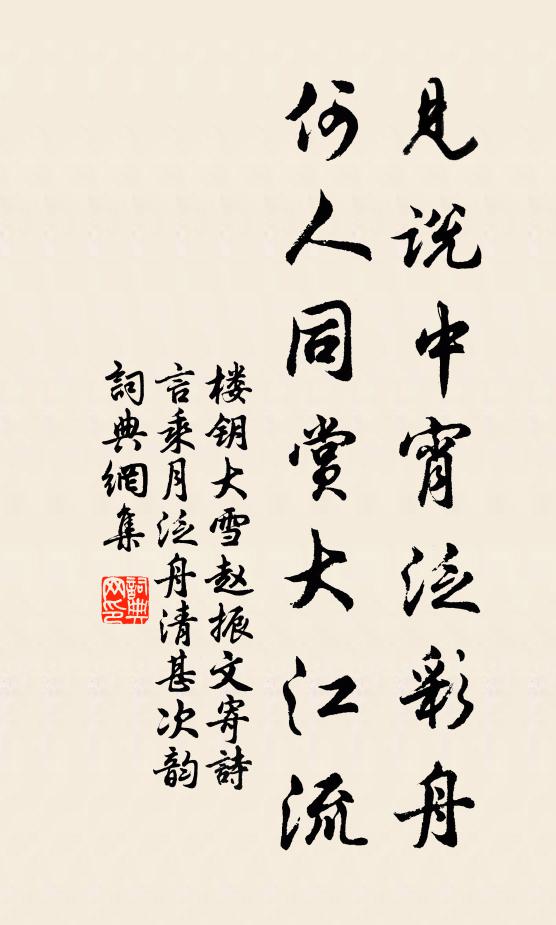 見說中宵泛彩舟
何人同賞大江流
楼钥大雪赵振文寄詩
言乘月泛舟清甚次韵
詞典網集
詞典網印